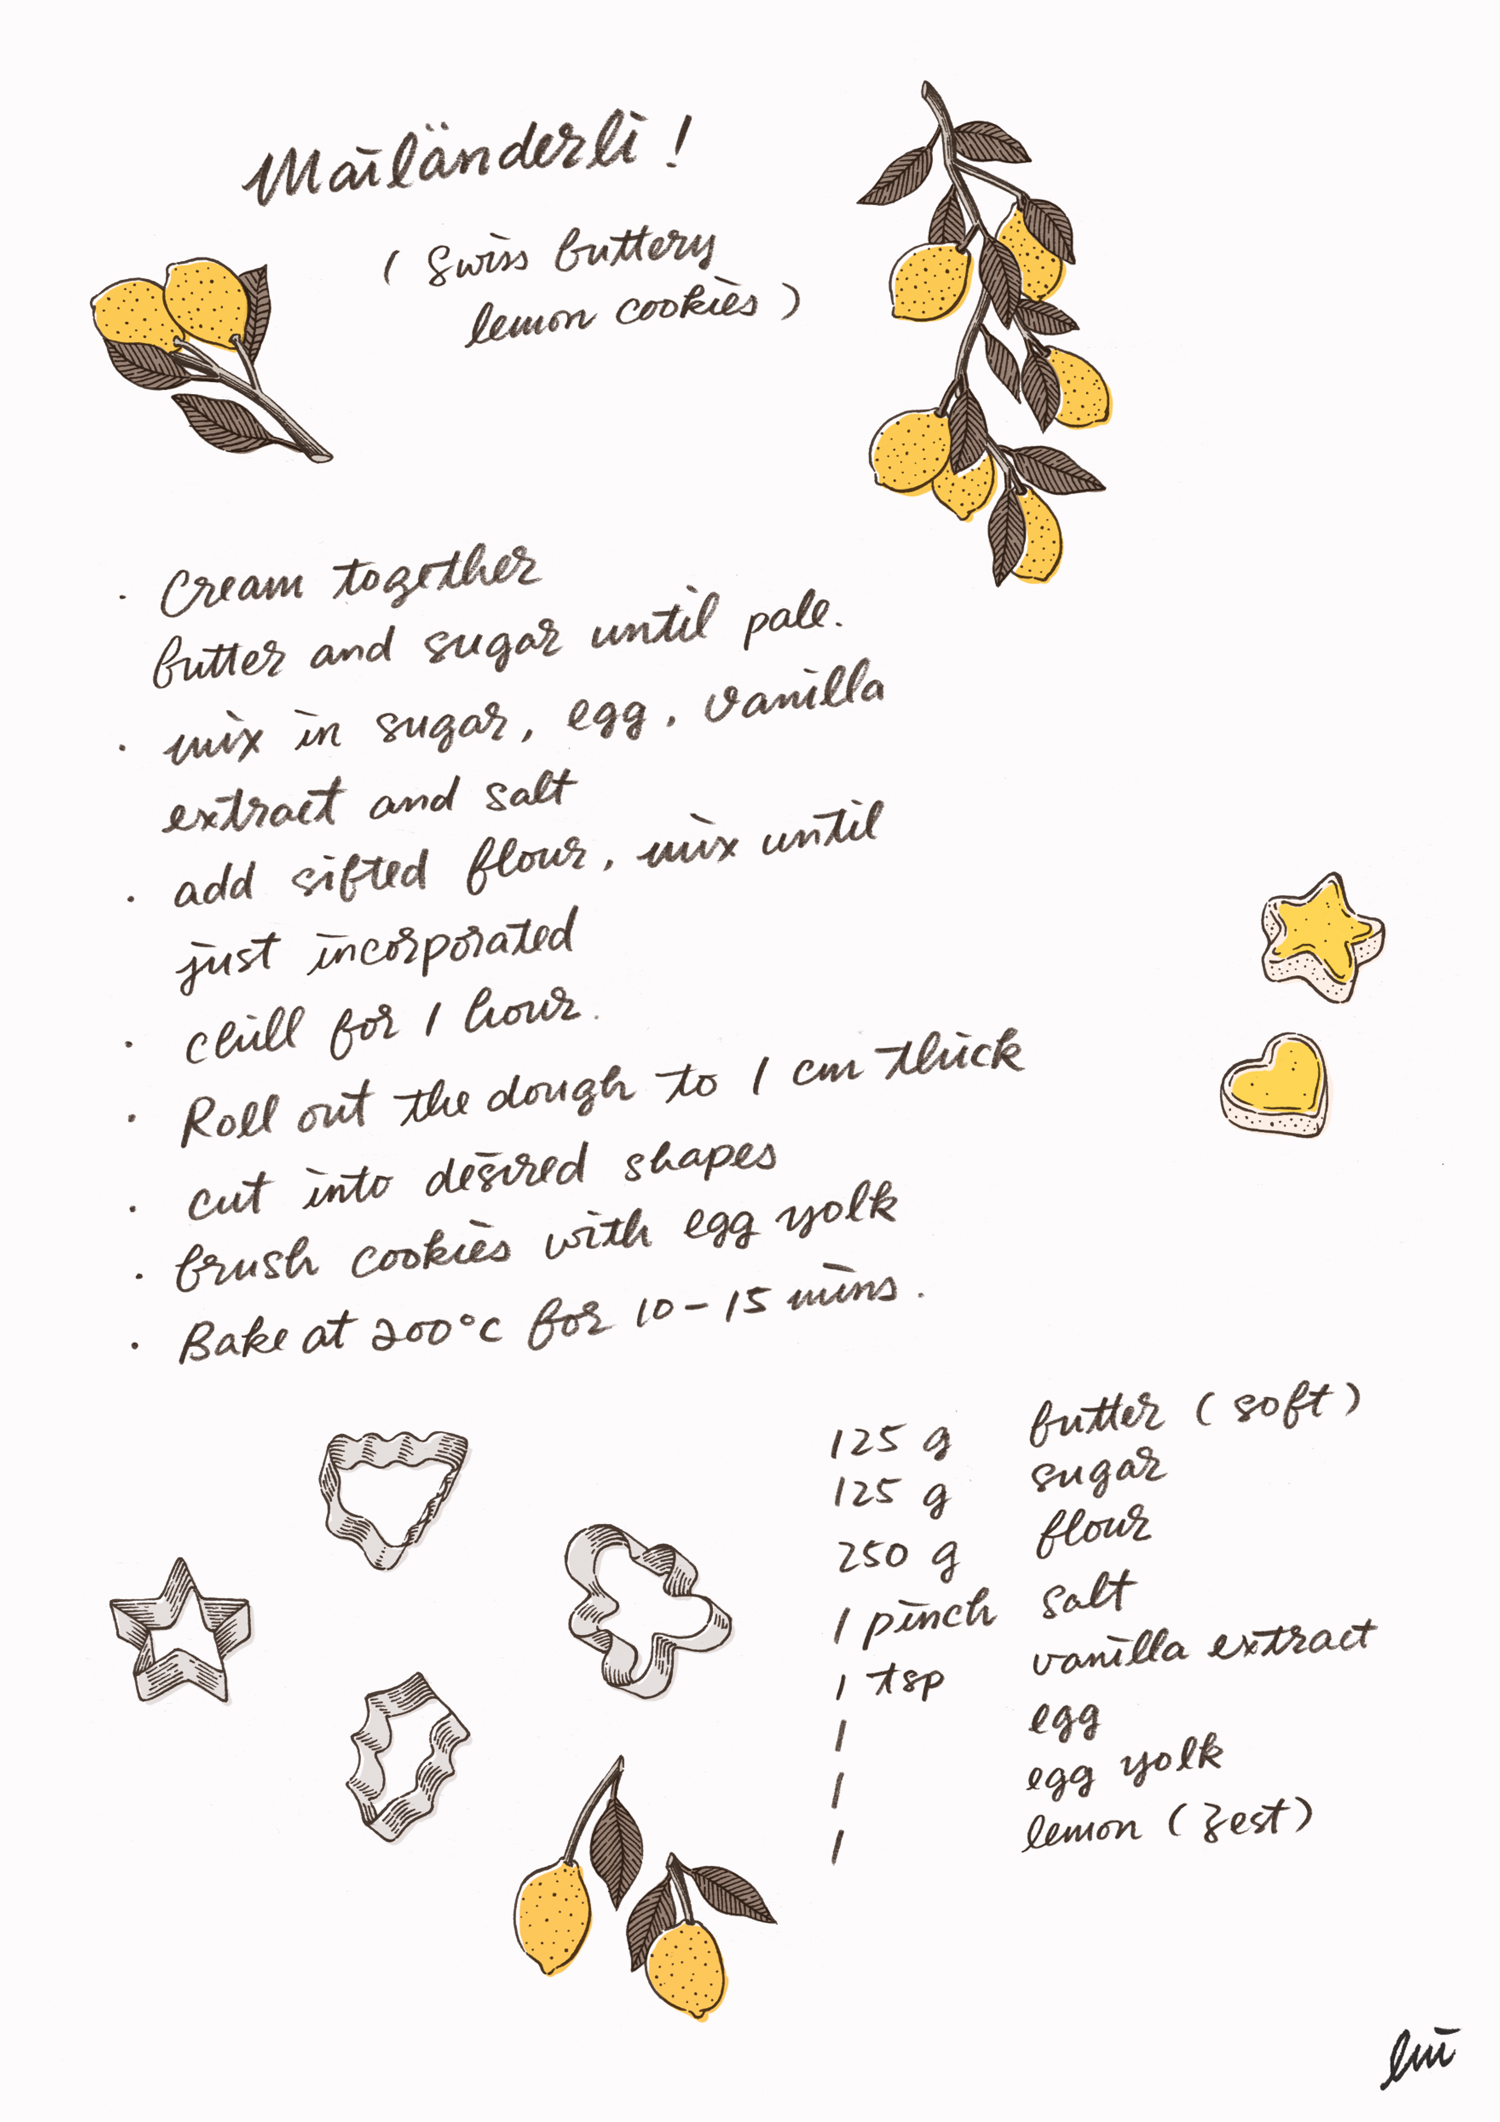 Mailänderli!
(Swiss buttery
lemon cookies)
· Cream together
butter and sugar until pale.
· mix in sugar, egg, vanilla
extract and salt
· add sifted flour, mix until
just incorporated
· chill for 1 hour.
· Roll out the dough to 1 cm thick
· cut into desired shapes
· brush cookies with egg yolk
· Bake at 200°C for 10-15 mins.
125 g butter (soft)
125 g sugar
250 g flour
1 pinch salt
1 tsp vanilla extract
1 egg
1 egg yolk
1 lemon (zest)